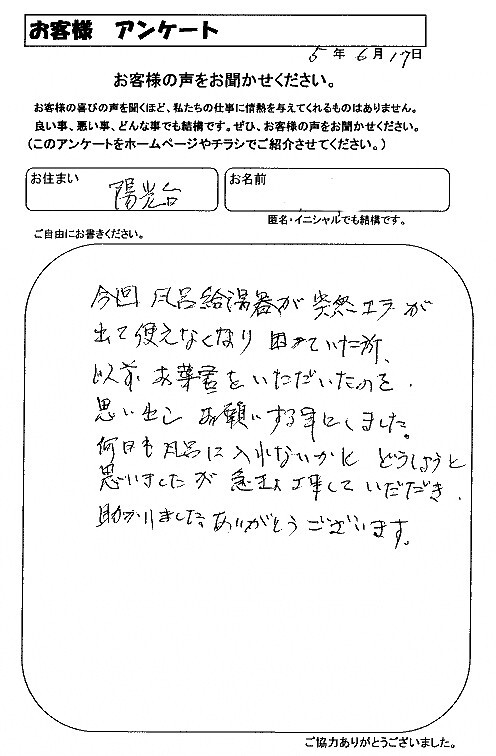 お客様 アンケート
5年6月17日
お客様の声をお聞かせください。
お客様の喜びの声を聞くほど、私たちの仕事に情熱を与えてくれるものはありません。
良い事、悪い事、どんな事でも結構です。ぜひ、お客様の声をお聞かせください。
(このアンケートをホームページやチラシでご紹介させてください。)
お住まい 陽光台
お名前
匿名・イニシャルでも結構です。
ご自由にお書きください。
今回 風呂給湯器が突然エラーが
出て使えなくなり 困っていた所、
以前 お葉書をいただいたのを
思い出し お願いする事にしました。
何日も風呂に入れないかと どうしようと
思いましたが 急きょ工事していただき、
助かりました。ありがとうございます。
ご協力ありがとうございました。